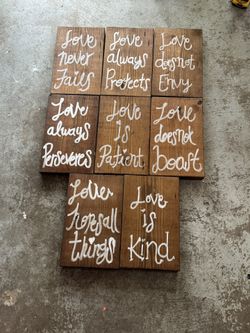 Love
never
Fails
Love
always
Protects
Love
does not
Envy
Love
always
Perseveres
Love
is
Patient
Love
does not
boast
Love
hopes all
things
Love
is
Kind